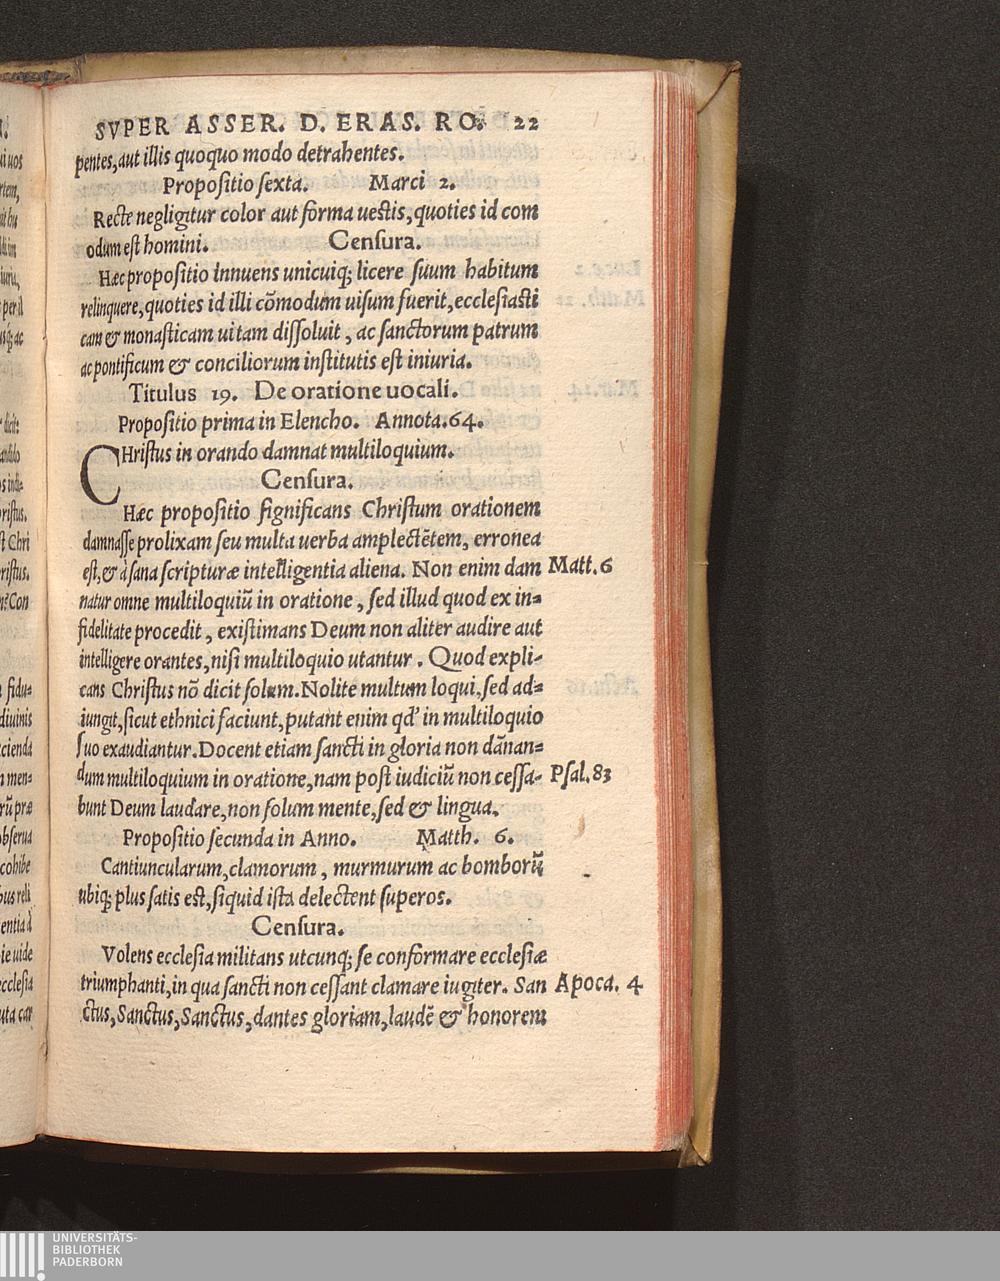 SVPER ASSER. D. ERAS. RO. 22
pentes, aut illis quoquo modo detrahentes.
Propositio sexta. Marci 2.
Recte negligitur color aut forma uestis, quoties id com
odum est homini. Censura.
Hæc propositio innuens unicuiq; licere suum habitum
relinquere, quoties id illi cõmodum uisum fuerit, ecclesiasti
cam & monasticam uitam dissoluit, ac sanctorum patrum
ac pontificum & conciliorum institutis est iniuria.
Titulus 19. De oratione uocali.
Propositio prima in Elencho. Annota. 64.
CHristus in orando damnat multiloquium.
Censura.
Hæc propositio significans Christum orationem
damnasse prolixam seu multa uerba amplectẽtem, erronea
est, & à sana scripturæ intelligentia aliena. Non enim dam Matt. 6
natur omne multiloquiũ in oratione, sed illud quod ex in=
fidelitate procedit, existimans Deum non aliter audire aut
intelligere orantes, nisi multiloquio utantur. Quod expli-
cans Christus nõ dicit solum. Nolite multum loqui, sed ad=
iungit, sicut ethnici faciunt, putant enim qď in multiloquio
suo exaudiantur. Docent etiam sancti in gloria non dãnan=
dum multiloquium in oratione, nam post iudiciũ non cessa- Psal. 83
bunt Deum laudare, non solum mente, sed & lingua.
Propositio secunda in Anno. Matth. 6.
Cantiuncularum, clamorum, murmurum ac bomborũ
ubiq; plus satis est, siquid ista delectent superos.
Censura.
Volens ecclesia militans utcunq; se conformare ecclesiæ
triumphanti, in qua sancti non cessant clamare iugiter. San Apoca. 4
ctus, Sanctus, Sanctus, dantes gloriam, laudẽ & honorem
UNIVERSITÄTS-
BIBLIOTHEK
PADERBORN